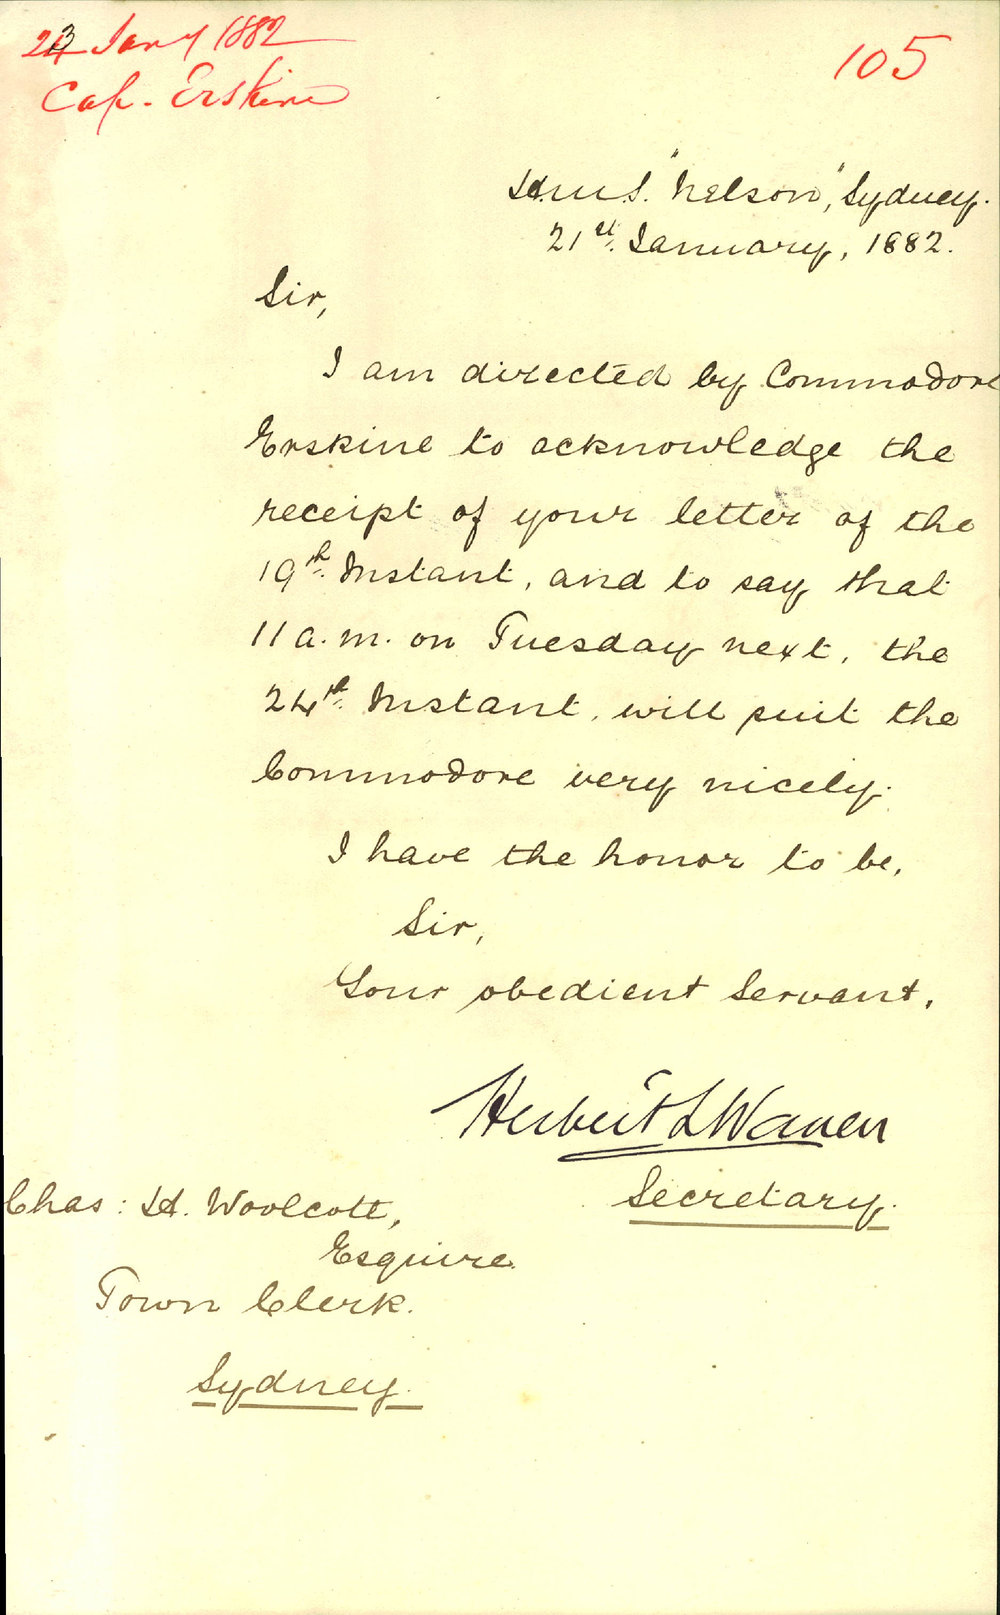 23 Jany 1882
Cap. Erskine
105
H.M.S. "Nelson", Sydney.
21st. January, 1882.
Sir,
I am directed by Commodore
Erskine to acknowledge the
receipt of your letter of the
19th. Instant, and to say that
11 a.m. on Tuesday next, the
24th. Instant, will suit the
Commodore very nicely.
I have the honor to be,
Sir,
Your obedient Servant,
Herbert L Warren
Secretary.
Chas: H. Woolcott,
Esquire.
Town Clerk.
Sydney.